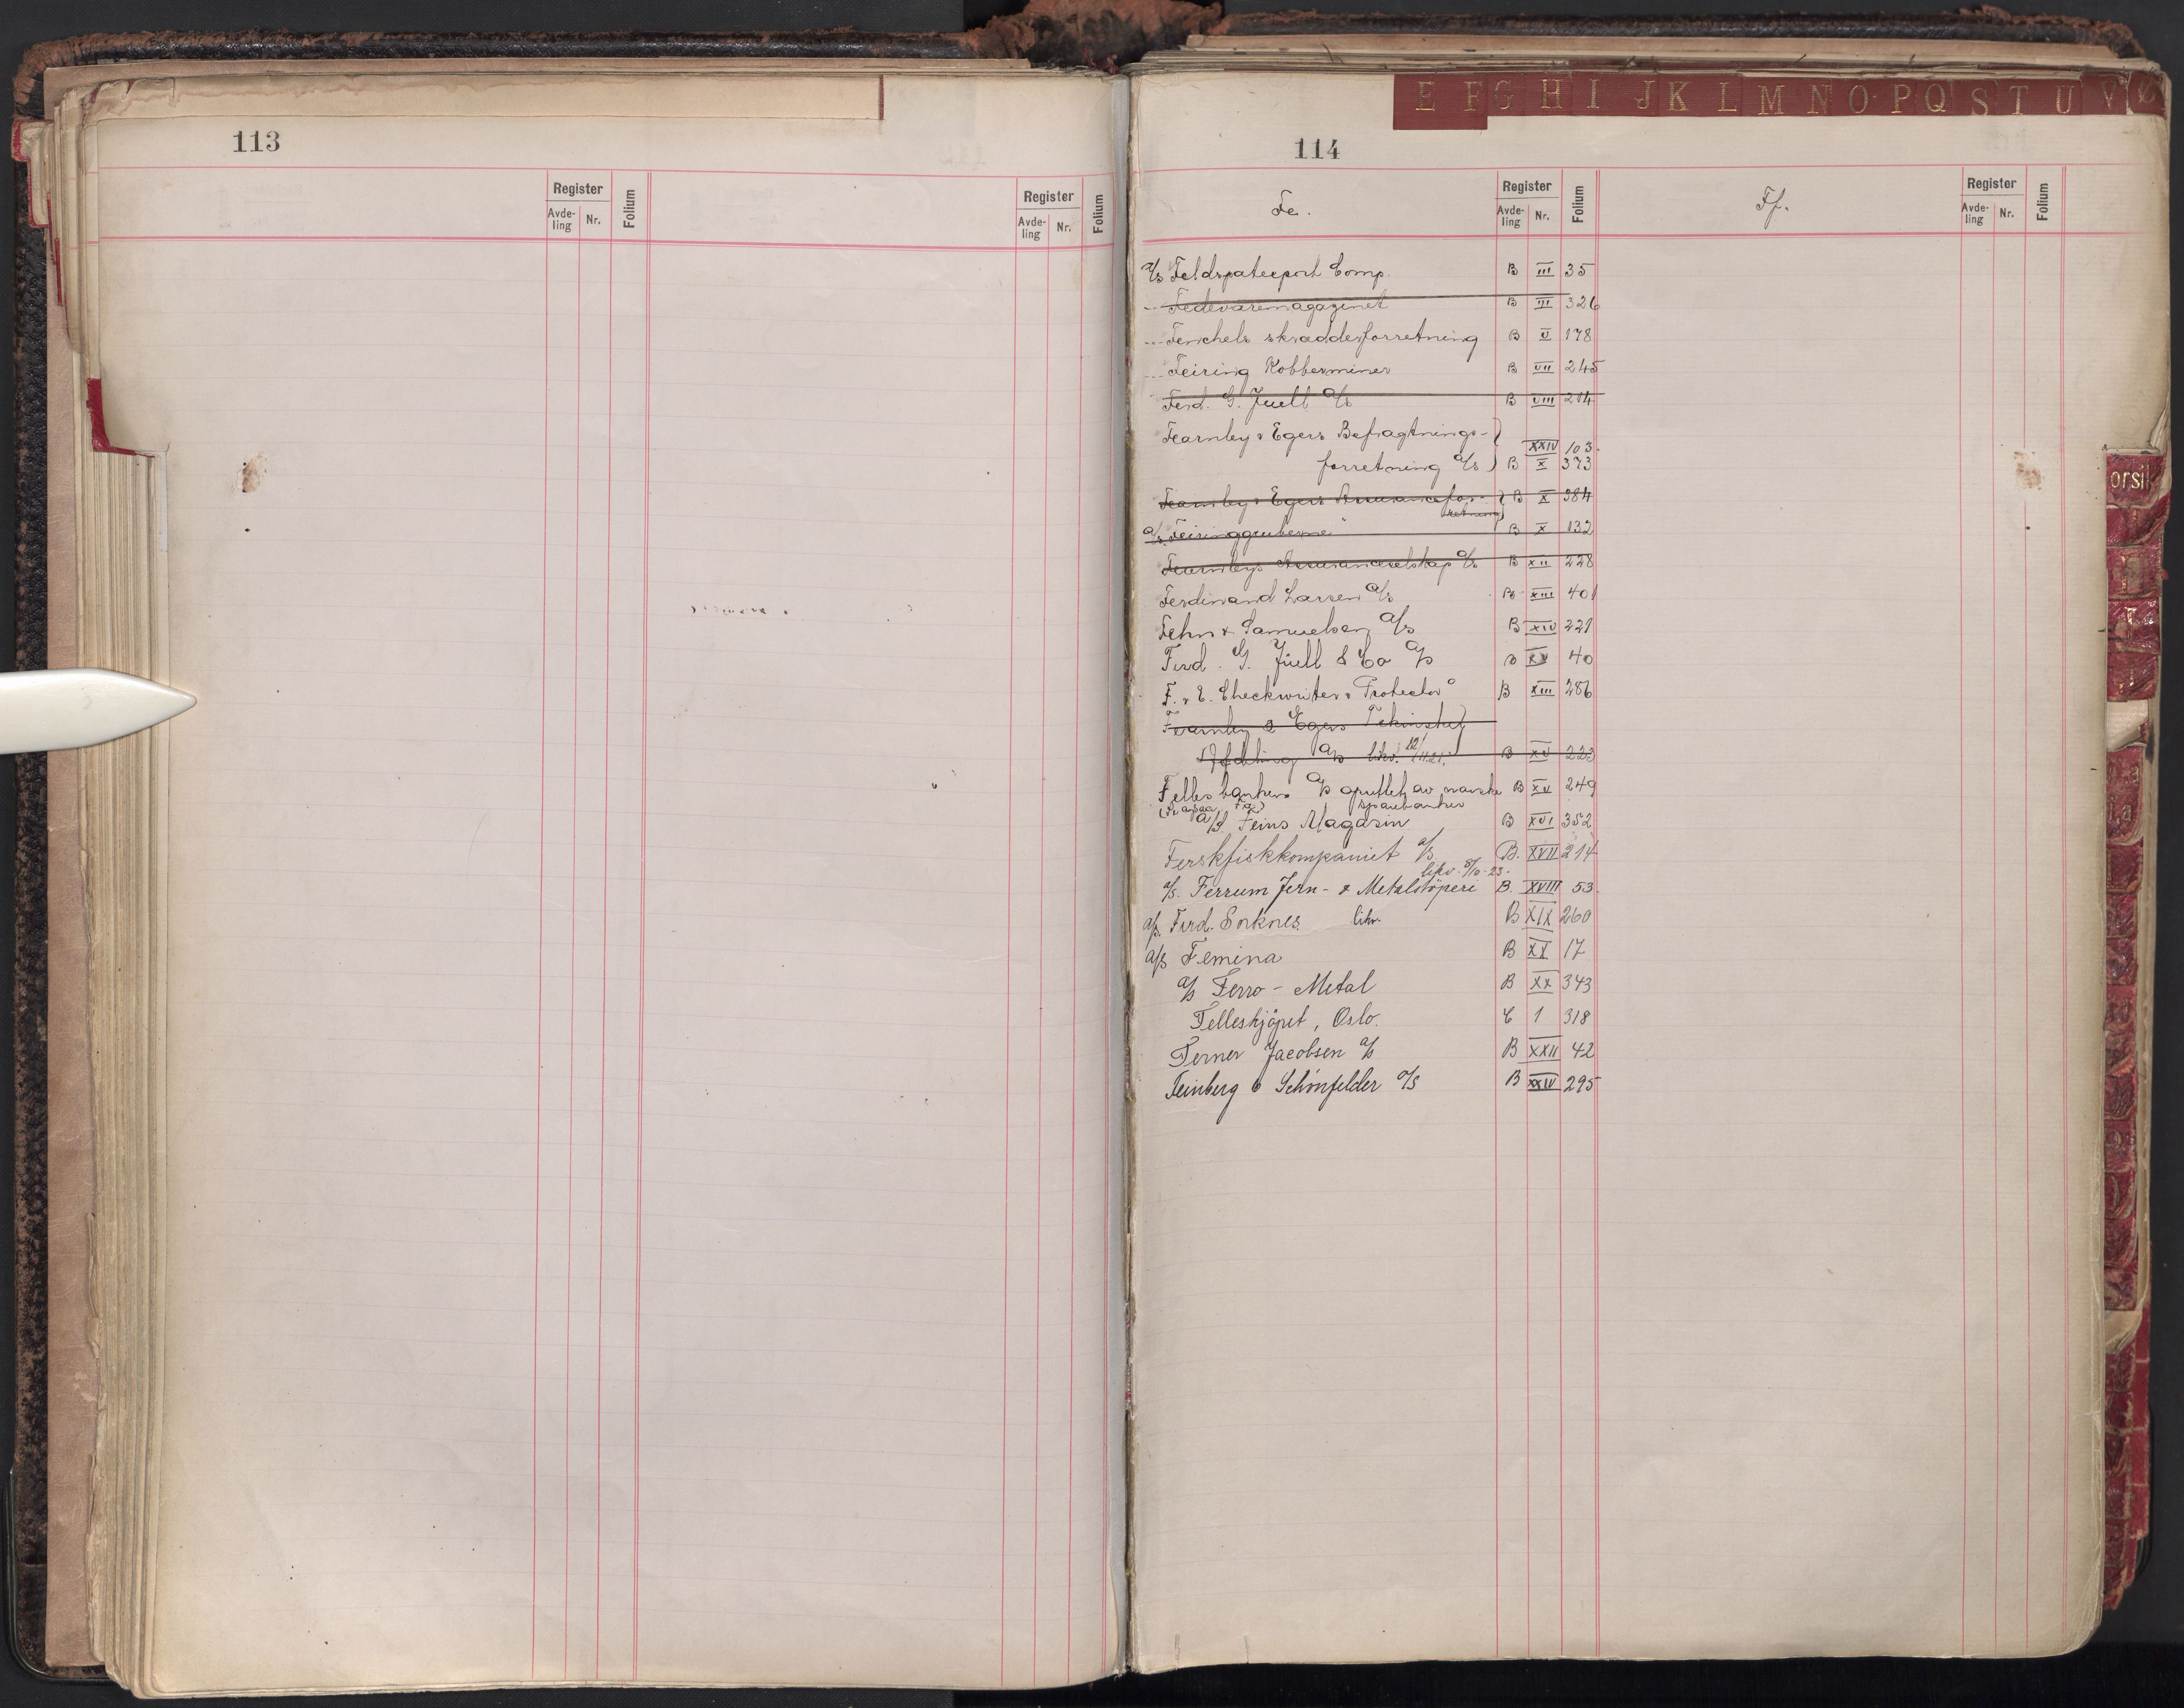 113
Register Folium Register Folium
Avde-ling Nr. Avde-ling Nr.
E F G H I J K L M N O P Q S T U V
114
Fe. Register Folium Ff. Register Folium
Avde-ling Nr. Avde-ling Nr.
a/s Feldspatexport Comp. B III 35
- Fedevaremagazinet B III 326
- Fenchels skrædderforretning B V 178
- Feiring Kobberminer B VII 245
Ferd. G. Juell a/s B VIII 214
Fearnley & Egers Befragtnings- XXIV 103.
forretning a/s B X 373
Fearnley & Egers Assurancefor- B X 384
retning
a/s Feiringgruberne" B X 132
Fearnleys Assuranceselskap a/s B XII 228
Ferdinand Larsen a/s B XIII 401
Fehn & Samuelsen a/s B XIV 221
Ferd. G. Juell & Co a/s B XV 40
F. & E. Checkwriter & Protector B XIII 286
Fearnley & Egers Tekniske
Afdeling a/s likv. 12/11 21. B XV 223
Fellesbanken a/s oprettet av norske B XV 249
sparebanker
a/s Feins Magasin B XVI 352
Ferskfiskkompaniet a/s B. XVII 214
likv. 8/10-23-
a/s. Ferrum Jern- & Metalstöperi B. XVIII 53.
a/s. Ferd. Sorknes. likv. B XIX 260
a/s Femina B XX 17
a/s Ferro - Metal B XX 343
Felleskjöpet, Oslo. C 1 318
Ferner Jacobsen a/s B XXII 42
Feinberg & Schönfelder a/s B XXIV 295
orsik